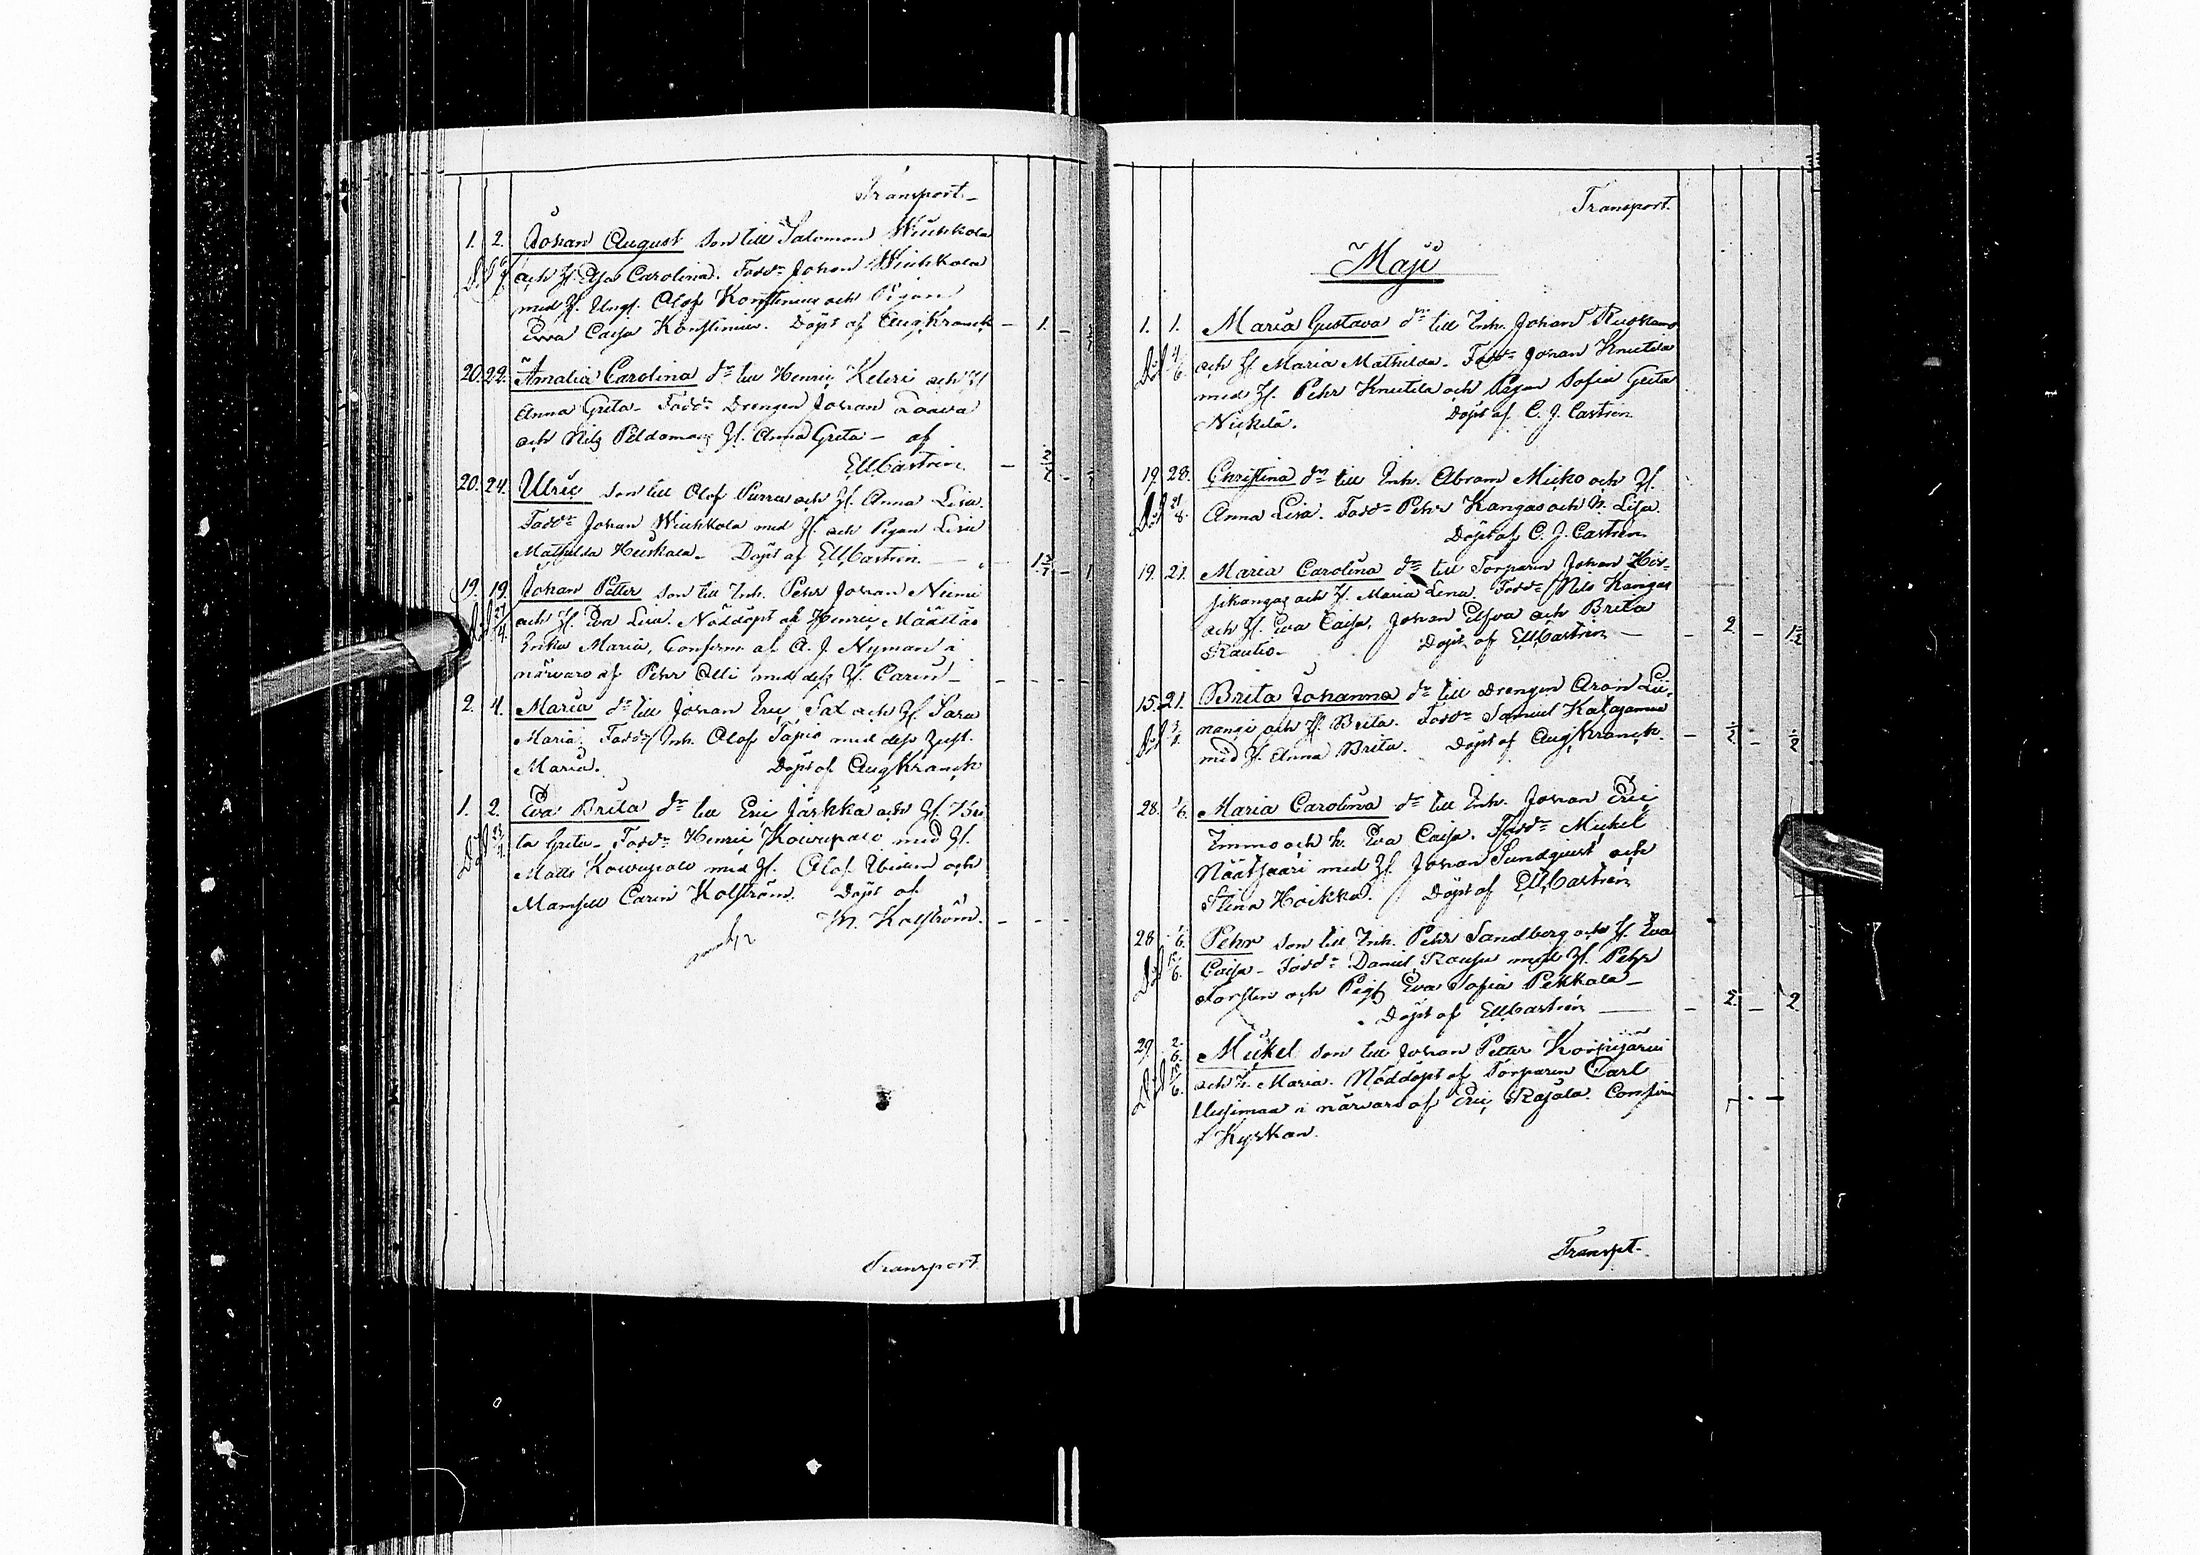 Transport.
1. 2. Johan August son till Salomon Wiuhkola
och H. Eva Carolina. Fadd: Johan Wiuhkola
med H. Ungk. Olof Konstenius och Pigan
Ewa Caisa Konstenius. Döpt af Aug Kranck – 1. –
20. 22. Amalia Carolina dr till Henric Keleri och H
Anna Greta – Fadd: Drengen Johan
och Nils Peldomaa H. Anna Greta – af
Castrén –
20. 24. Ulric son till Olof Purra och H. Anna Lisa.
Fadd: Johan Wiuhkola med H. och Pigan Lisa
Mathilda Heiskala – Döpt af Castrén.
19. 19. Johan Petter son till Inh. Pehr Johan Niemi
Död 27/4. och H. Eva Lisa. Nöddöpt af Henric Määttäs
Erika Maria, Confirm. af A. J. Nyman i
närvaro af Pehr Olli med dess H. Carin –
2. 4. Maria dr till Johan Eric Sax och H. Sara
Maria. Fadd: Inh. Olof Tapio med dess Hust.
Maria. Döpt af Aug Kranck
1. 2. Eva Brita dr till Eric Jaskka och H. Bri
Död ta Greta – Fadd: Henric Koivupalo med H.
Matts Koivupalo med H. Olof och
Mamsell Carin Kolström. Döpt af
M. Kolström. – – –
Transport
Transport.
Maji
1. 1. Maria Gustava dr till Inh. Johan
Död 4/6. och H Maria Mathilda. Fadd: Johan Knutila
med H. Pehr Knutila och Pigan Sofia Greta
Niskela. Döpt af C. J. Castrén.
19. 23. Christina dr till Inh. Abram Micko och H.
Död 21/8. Anna Lisa. Fadd: Pehr Kangas och H. Lisa.
Döpt af C. J. Castrén.
19. 21. Maria Carolina dr till Torparen Johan Hir-
sikangas och H. Maria Lena. Fadd: Nils Kangas
och H. Eva Caisa, Johan och Brita
Rautio. Döpt af Castrén – – 2 – 1½
15. 21. Brita Johanna dr till Drengen Aron Lii-
Död nangi och H. Brita. Fadd: Samuel Katajamaa
med H. Anna Brita. Döpt af Aug Kranck. – ½ – ½
28. 1/6. Maria Carolina dr till Inh. Johan Eric
Immo och H. Eva Caisa. Fadd: Mickel
Näätsaari med H. Johan Sundquist och
Stina Hoikka. Döpt af Castrén
28. 1/6. Pehr son till Inh. Pehr Sandberg och H. Eva
Död Caisa – Fadd: Daniel med H. Pehr
Torsten och Pig. Eva Sofia Pekkala –
Döpt af Castrén – – 2 – 2
29. 2/6. Mickel son till Johan Petter Korpijärvi
Död och H. Maria. Nöddöpt af Torparen Carl
Uusimaa i närvaro af Eric Rajala. Confirm
i Kyrkan.
Transpt.